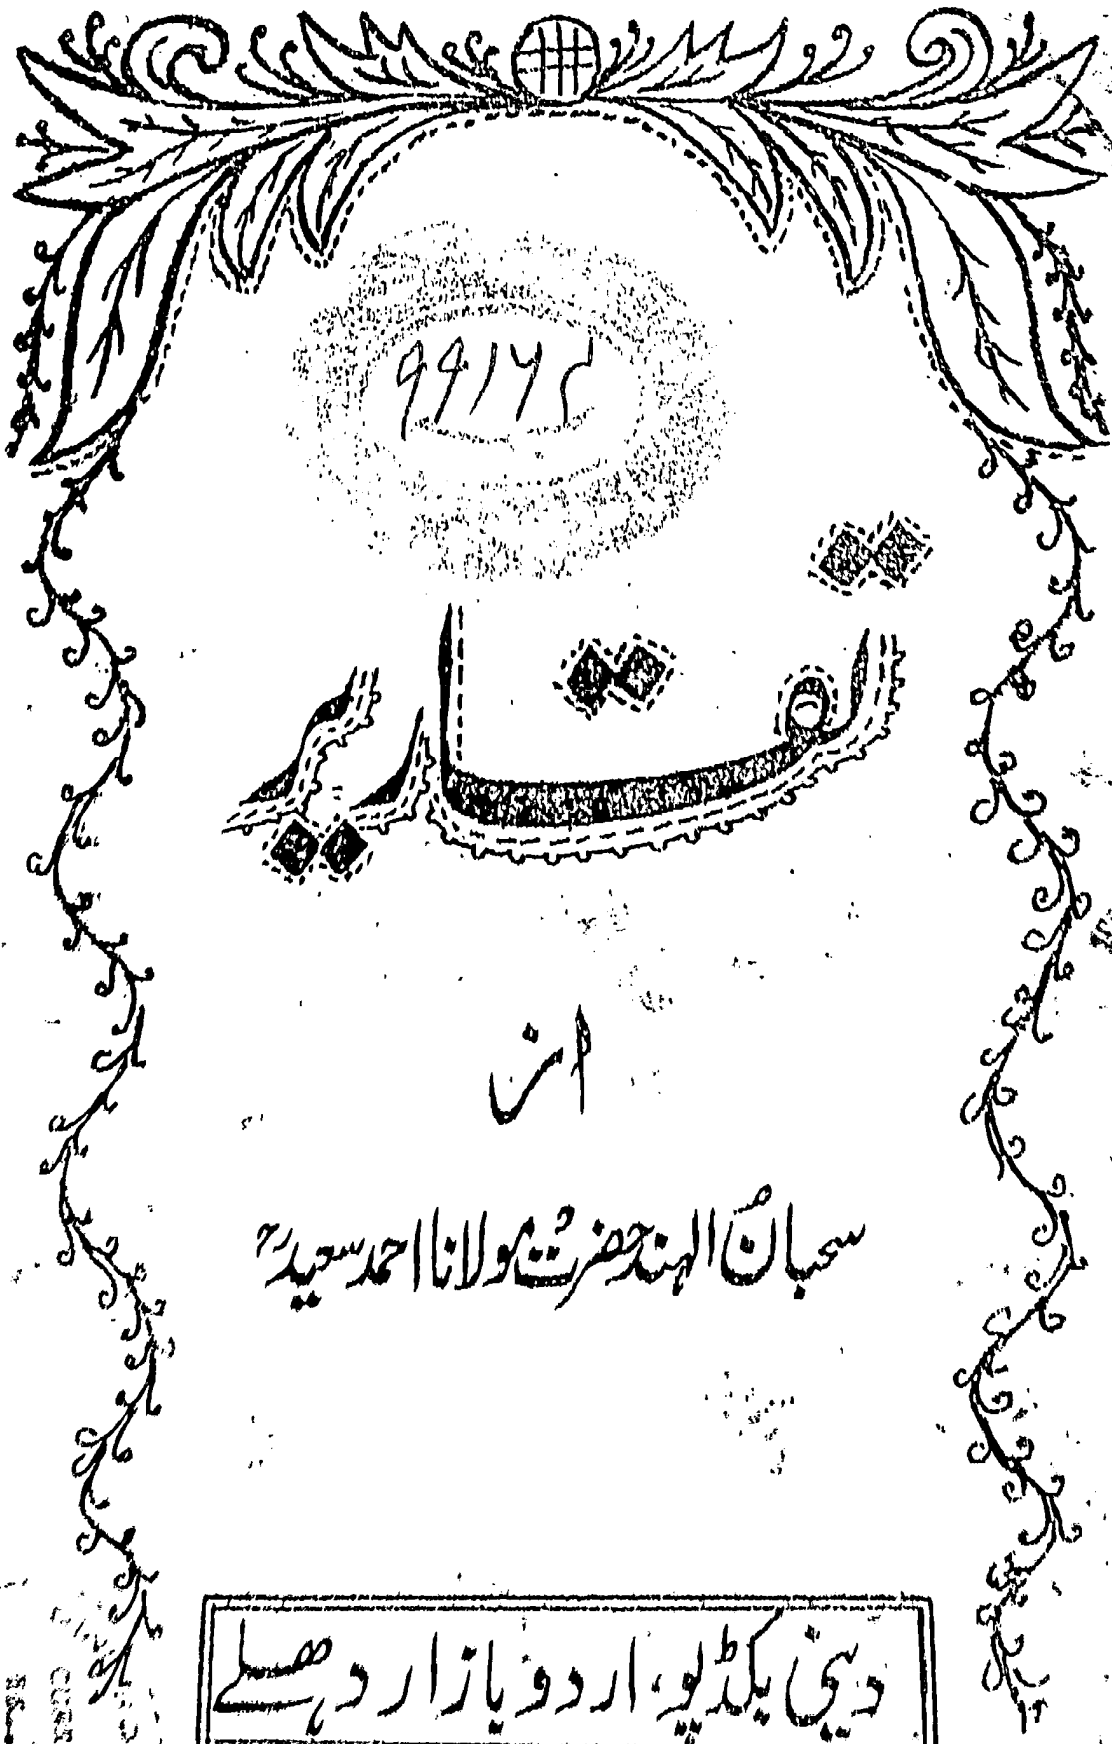 تقاریر
از
سحبان الہند حضرت مولانا احمد سعیدؒ
دینی بکڈپو، اردو بازار دہلی